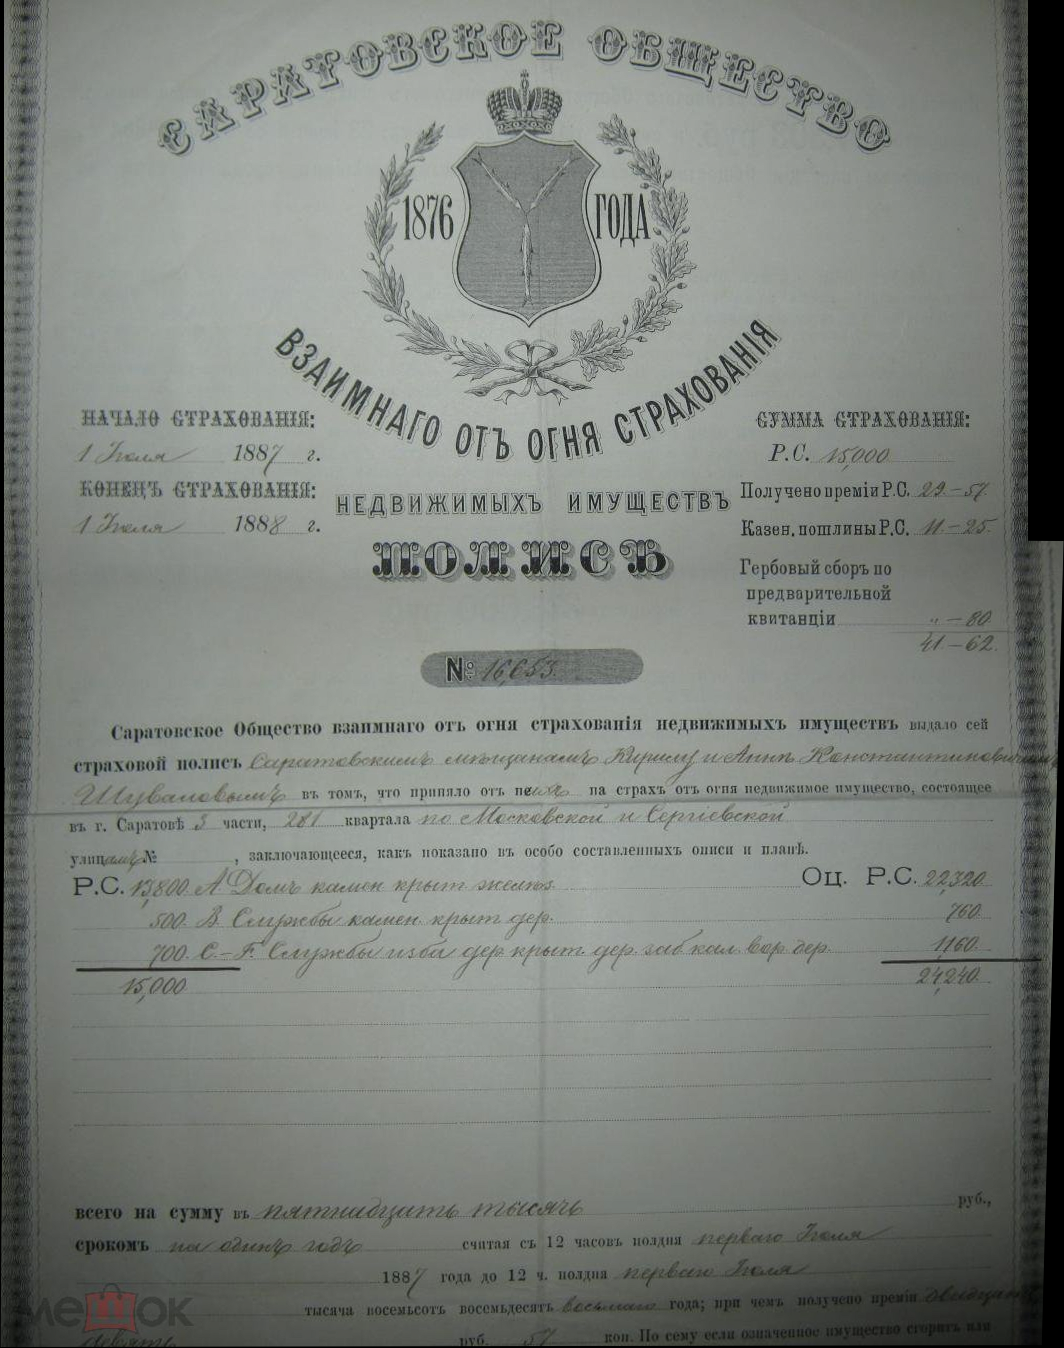 САРАТОВСКОЕ ОБЩЕСТВО
1876 ГОДА
ВЗАИМНАГО ОТЪ ОГНЯ СТРАХОВАНІЯ
НЕДВИЖИМЫХЪ ИМУЩЕСТВЪ
ПОЛИСЪ
НАЧАЛО СТРАХОВАНІЯ:
1 Іюля 1887 г.
КОНЕЦЪ СТРАХОВАНІЯ:
1 Іюля 1888 г.
СУММА СТРАХОВАНІЯ:
Р.С. 15,000
Получено преміи Р.С. 29-57
Казен. пошлины Р.С. 11-25
Гербовый сборъ по
предварительной
квитанціи „-80
41-62
№ 16,653
Саратовское Общество взаимнаго отъ огня страхованія недвижимыхъ имуществъ выдало сей
страховой полисъ Саратовскимъ мѣщанамъ Кирилу и Аннѣ Константиновичамъ
Шуваловымъ въ томъ, что приняло отъ нихъ на страхъ отъ огня недвижимое имущество, состоящее
въ г. Саратовѣ 3 части, 281 квартала по Московской и Сергіевской
улицамъ №, заключающееся, какъ показано въ особо составленныхъ описи и планѣ.
Р.С. 13,800 А Домъ камен крыт желѣз. Оц. Р.С. 22,320
500 В. Службы камен. крыт дер. 760
700 С.-F. Службы изба дер. крыт. дер. заб кал. вор. дер. 1,160
15,000 24,240
всего на сумму въ пятнадцать тысячъ руб.,
срокомъ на одинъ годъ считая съ 12 часовъ полдня перваго Іюля
1887 года до 12 ч. полдня перваго Іюля
тысяча восемьсотъ восемьдесятъ восьмаго года; при чемъ получено преміи двадцать
девять руб. 57 коп. По сему если означенное имущество сгоритъ или
мешок